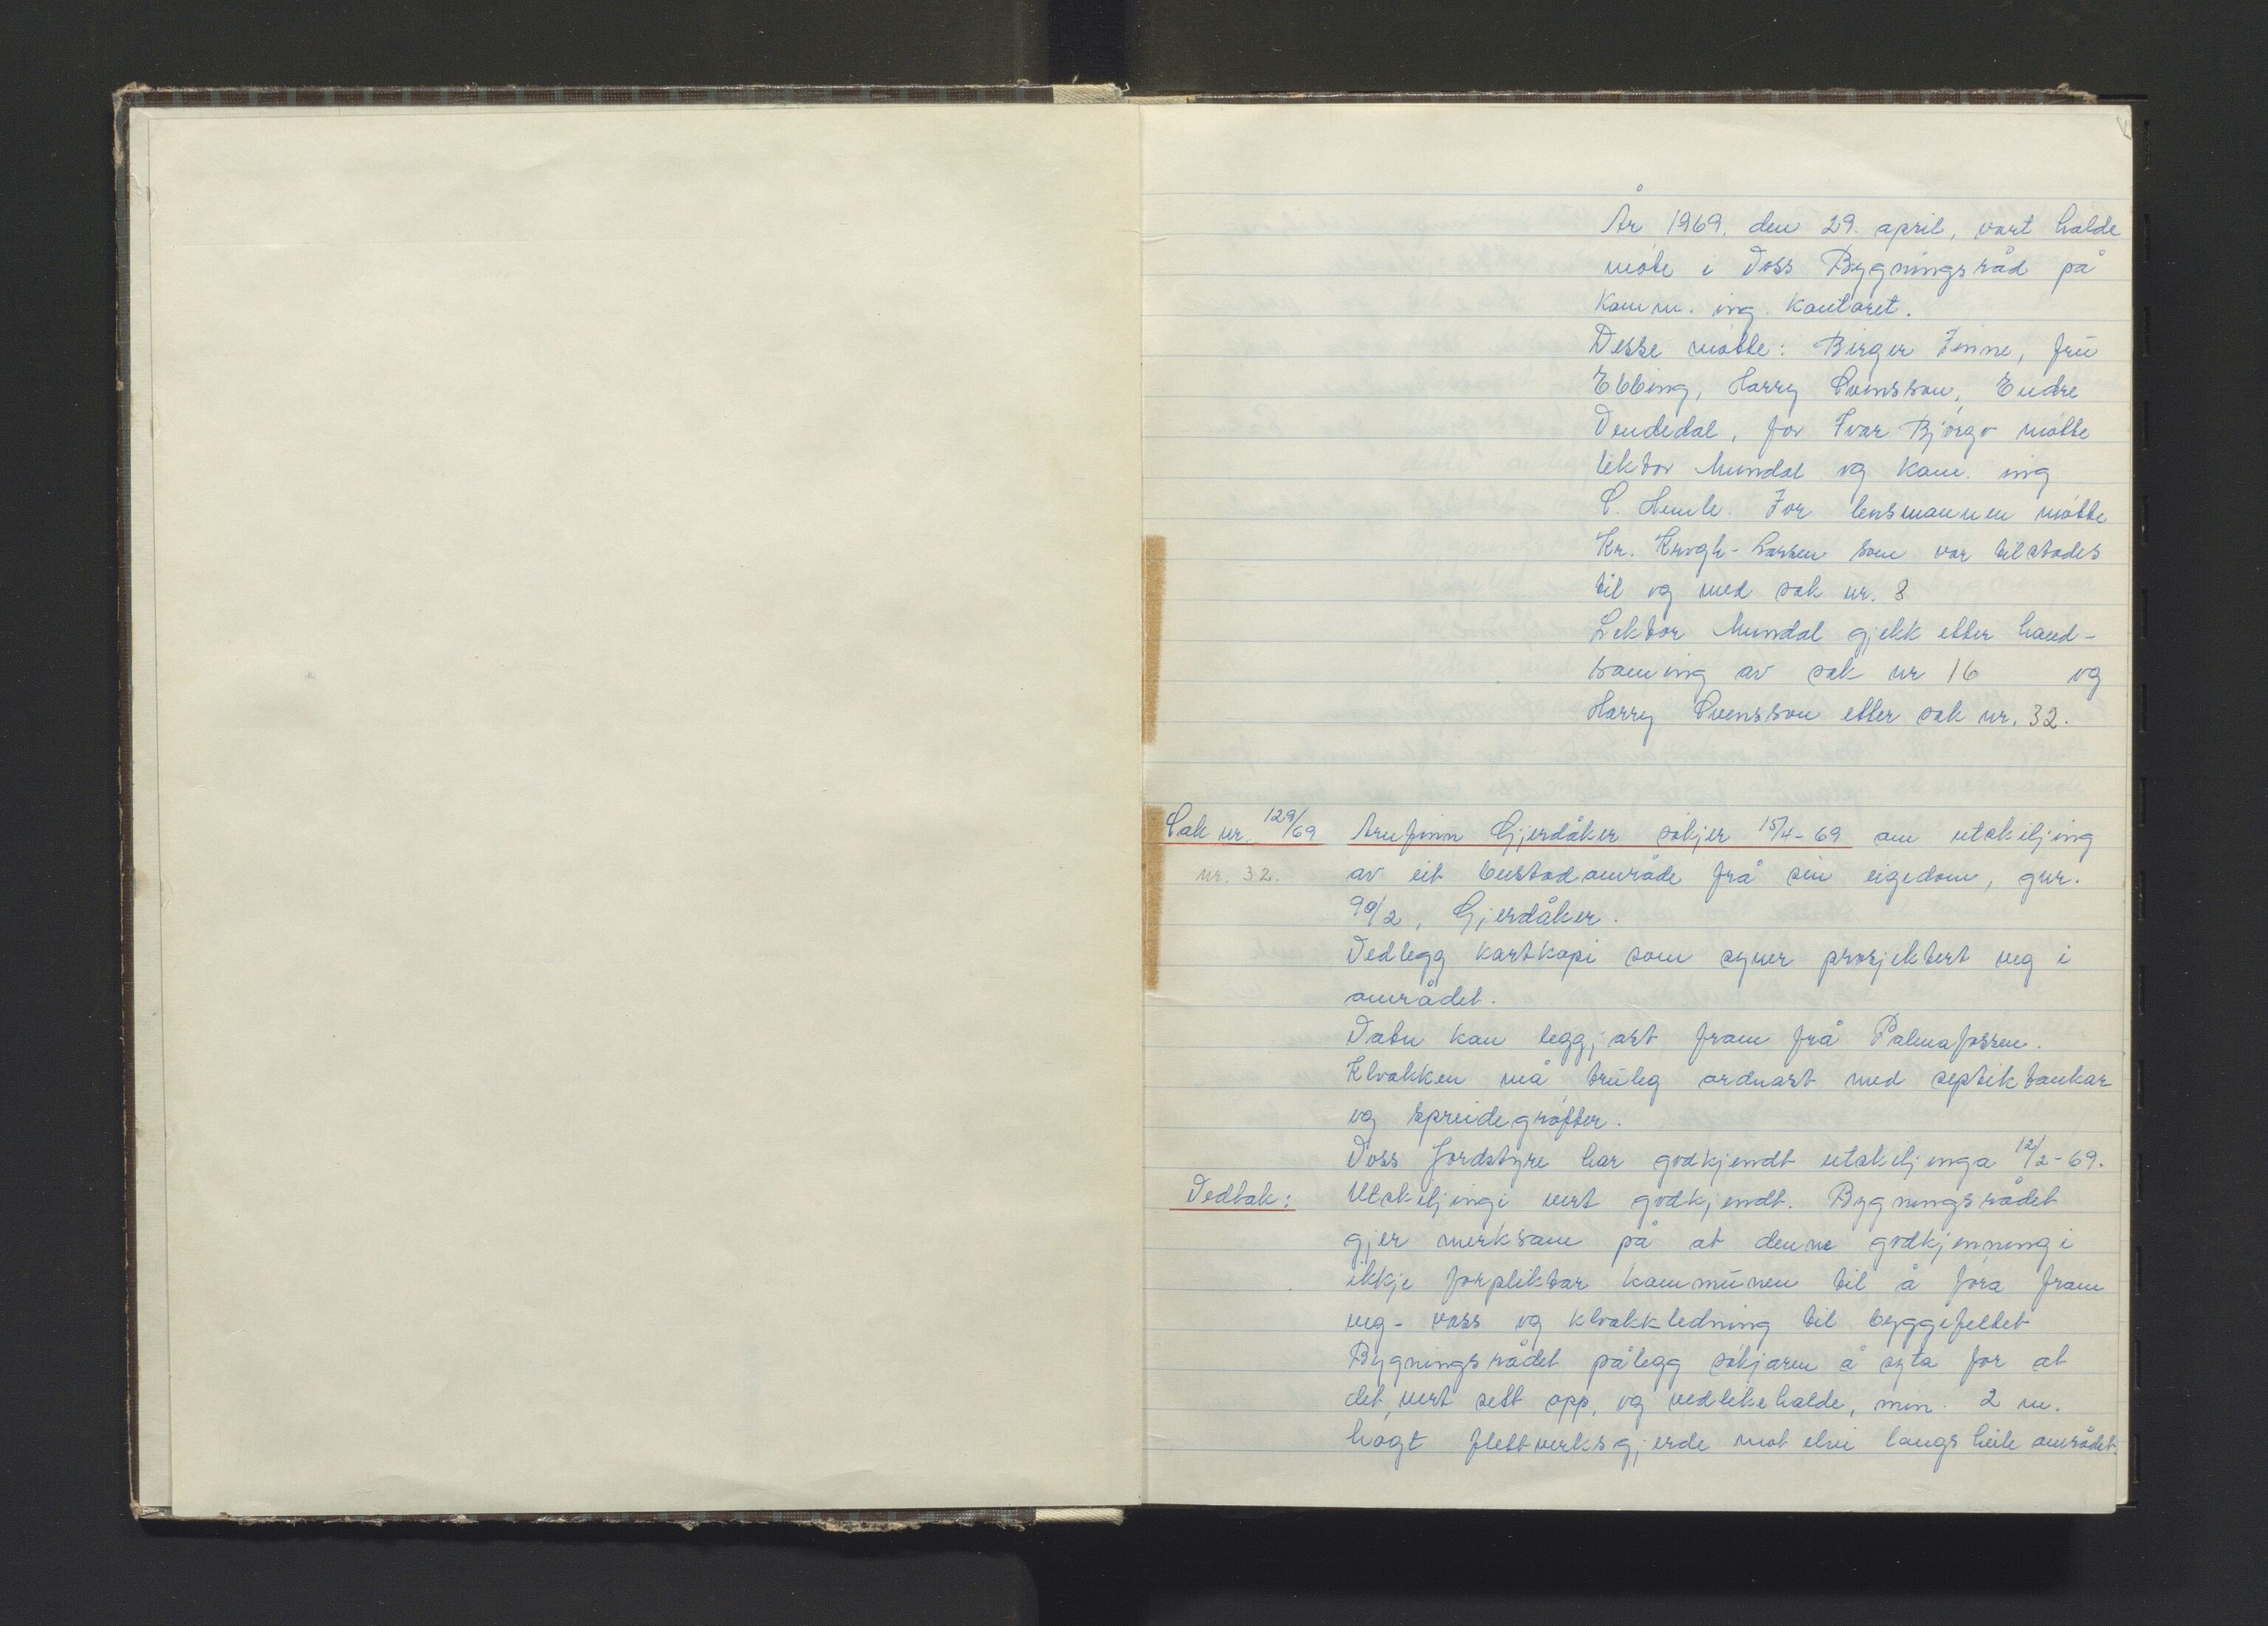 År 1969. den 29. april, vart halde
møte i Voss Bygningsråd på
Komm. ing. kontoret.
Desse møtte: Birger Finne, fru
Ebbing, Harry Svensson, Endre
Vendedal, for Ivar Bjørgo møtte
lektor Mundal og kom. ing
S. Hemle. For lensmannen møtte
Kr. Krogh-Larsen som var tilstades
til og med sak nr. 8
Lektor Mundal gjekk etter hand-
saming av sak nr 16 og
Harry Svensson etter sak nr. 32.
Sak nr. 129/69 Arnfinn Gjerdåker søkjer 15/4-69 om utskiljing
nr. 32. av eit bustadområde frå sin eigedom, gnr.
90/2, Gjerdåker.
Vedlegg kartkopi som syner prosjektert veg i
området.
Vatn kan leggjast fram frå Palmafossen.
Kloakken må truleg ordnast med septiktankar
og spreidegrøfter.
Voss Jordstyre har godkjendt utskiljinga 12/2-69.
Vedtak: Utskiljingi vert godkjendt. Bygningsrådet
gjer merksam på at denne godkjenningi
ikkje forpliktar kommunen til å føra fram
veg- vass og kloakkledning til byggefeltet
Bygningsrådet pålegg søkjaren å syta for at
det, vert sett opp, og vedlikehalde, min. 2 m.
høgt flettverksgjerde mot elvi langs heile området.